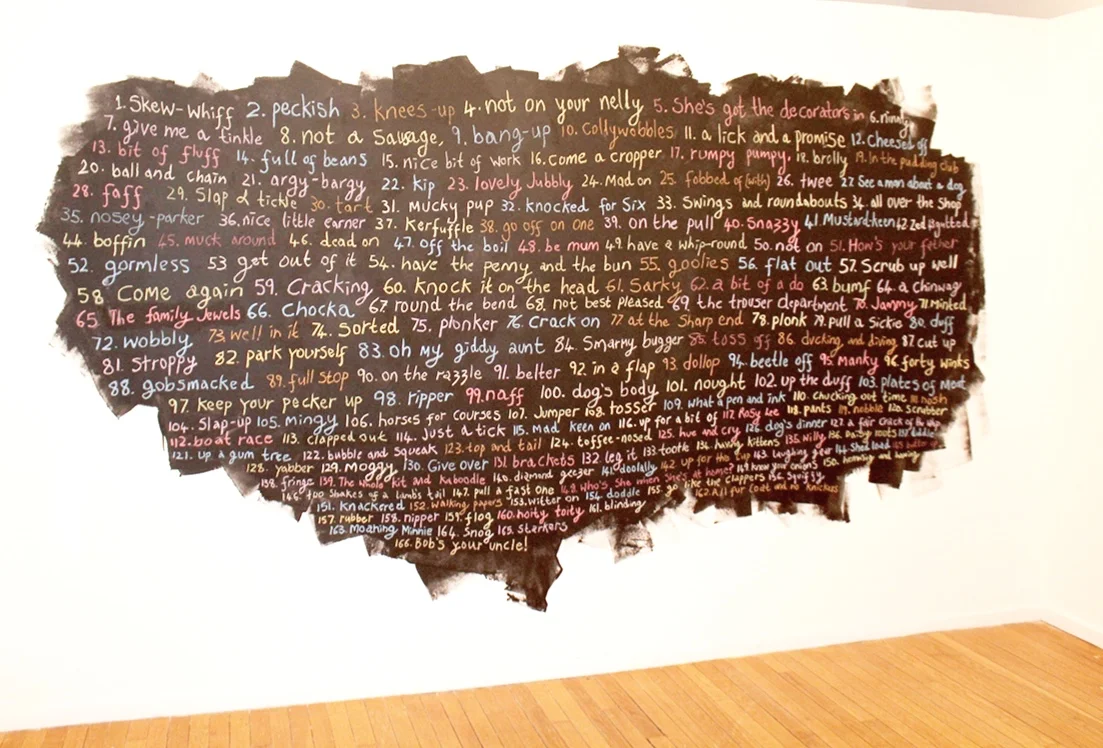 1. Skew-Whiff 2. peckish 3. knees-up 4. not on your nelly 5. She's got the decorators in 6.
7. give me a tinkle 8. not a Sausage, 9. bang-up 10. Collywobbles 11. a lick and a promise 12. Cheesed off
13. bit of fluff 14. full of beans 15. nice bit of work 16. Come a cropper 17. rumpy pumpy. 18. brolly 19. In the pudding club
20. ball and chain 21. argy-bargy 22. kip 23. lovely Jubbly 24. Mad on 25. fobbed of (with) 26. twee 27 See a man about a dog
28. faff 29. Slap & tickle 30. tart 31. Mucky pup 32. knocked for Six 33. Swings and roundabouts 34. all over the Shop
35. nosey-parker 36. nice little earner 37. Kerfuffle 38. go off on one 39. on the pull 40. Snazzy 41 Mustard-keen 42
44. boffin 45. muck around 46. dead on 47. off the boil 48. be mum 49. have a whip-round 50. not on 51. How's your father
52. gormless 53 get out of it 54. have the penny and the bun 55. goolies 56. flat out 57. Scrub up well
58 Come again 59. Cracking 60. Knock it on the head 61. Sarky 62. a bit of a do 63. bumf 64. a chinwag
65 The family Jewels 66. Chocka 67. round the bend 68. not best pleased 69. the trouser department 70. Jammy 71 Minted
72. wobbly 73. well in it 74. Sorted 75. plonker 76. Crack on 77 at the Sharp end 78. plonk 79. pull a Sickie 80. duff
81. Stroppy 82. park yourself 83. oh my giddy aunt 84. Smarmy bugger 85. toss off 86. ducking and diving 87 cut up
88. gobsmacked 89. full stop 90. on the razzle 91. belter 92. in a flap 93. dollop 94. beetle off 95. Manky 96. forty winks
97. keep your pecker up 98. ripper 99. naff 100. dog's body 101. nought 102. up the duff 103. plates of meat
104. Slap-up 105. mingy 106. horses for courses 107. Jumper 108. tosser 109. What a pen and ink 110. Chucking out time 111 nosh
112. boat race 113. clapped out 114. Just a tick 115. Mad keen on 116. up for a bit of 117 Rosy Lee 118. pants 119. nobble 120. scrubber
121. up a gum tree 122. bubble and Squeak 123. top and tail 124. toffee-nosed 125. hue and cry 126. dog's dinner 127. a fair crack of the whip
128. yabber 129. Moggy 130. Give over 131 brackets 132 leg it 133. tooth 134. having kittens 135. Willy 136. Daisy roots
138. fringe 139. The whole kit and kaboodle 140. diamond geezer 141. doolally 142 up for the Cup 143. laughing gear
146. two Shakes of a lambs tail 147. pull a fast one 148. Who's She when She's at home? 149 know your onions 150.
151. Knackered 152. walking papers 153. Witter on 154. doddle 155. go like the clappers 156. Squiffy
157. rubber 158. nipper 159. flog 160. hoity toity 161. blinding 162. All fur coat and no knickers
163. Moaning Minnie 164. Snog 165. Starkers
166. Bob's your uncle!